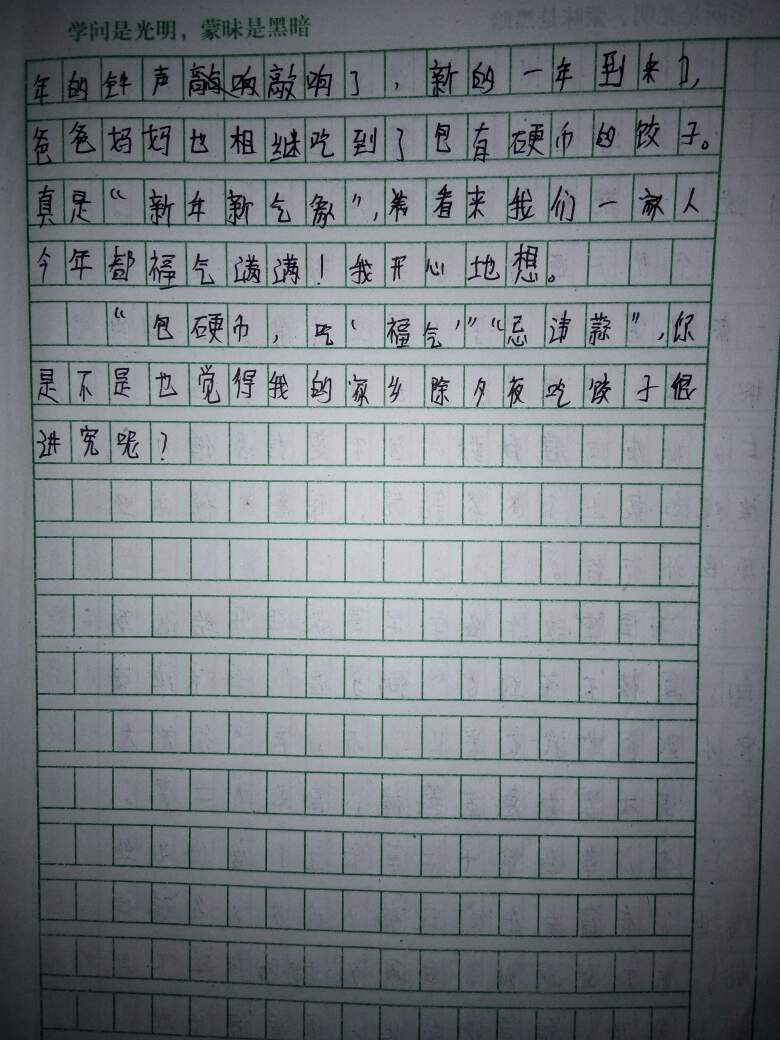 学问是光明，蒙昧是黑暗
年的钟声敲响敲响了，新的一年到来了，
爸爸妈妈也相继吃到了包有硬币的饺子。
真是“新年新气象”，看来我们一家人
今年都福气满满！我开心地想。
“包硬币，吃‘福气’”“忌违蒜”，你
是不是也觉得我的家乡除夕夜吃饺子很
讲究呢？